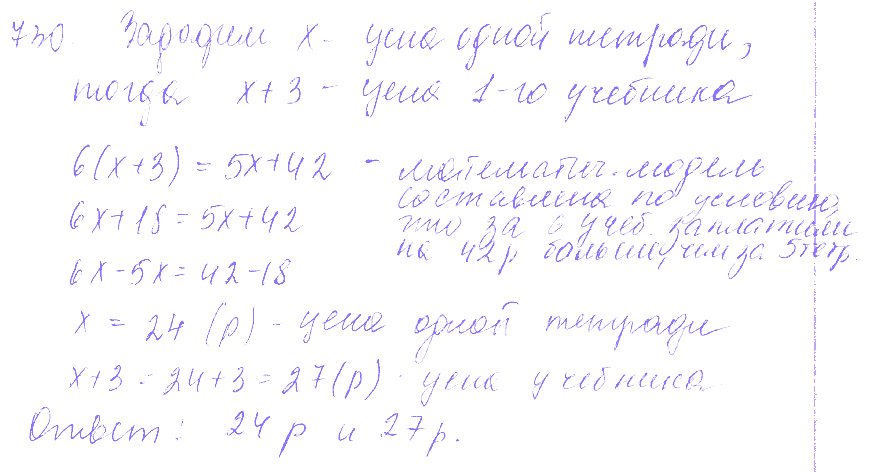 730. Зададим x - цена одной тетради,
тогда x+3 - цена 1-го учебника
6(x+3) = 5x+42 - математич. модель
составлена по условию,
6x+18=5x+42
что за 6 учеб. заплатили
на 42р больше, чем за 5 тетр.
6x-5x=42-18
x = 24 (р) - цена одной тетради
x+3 = 24+3=27(р) - цена учебника
Ответ: 24 р и 27р.